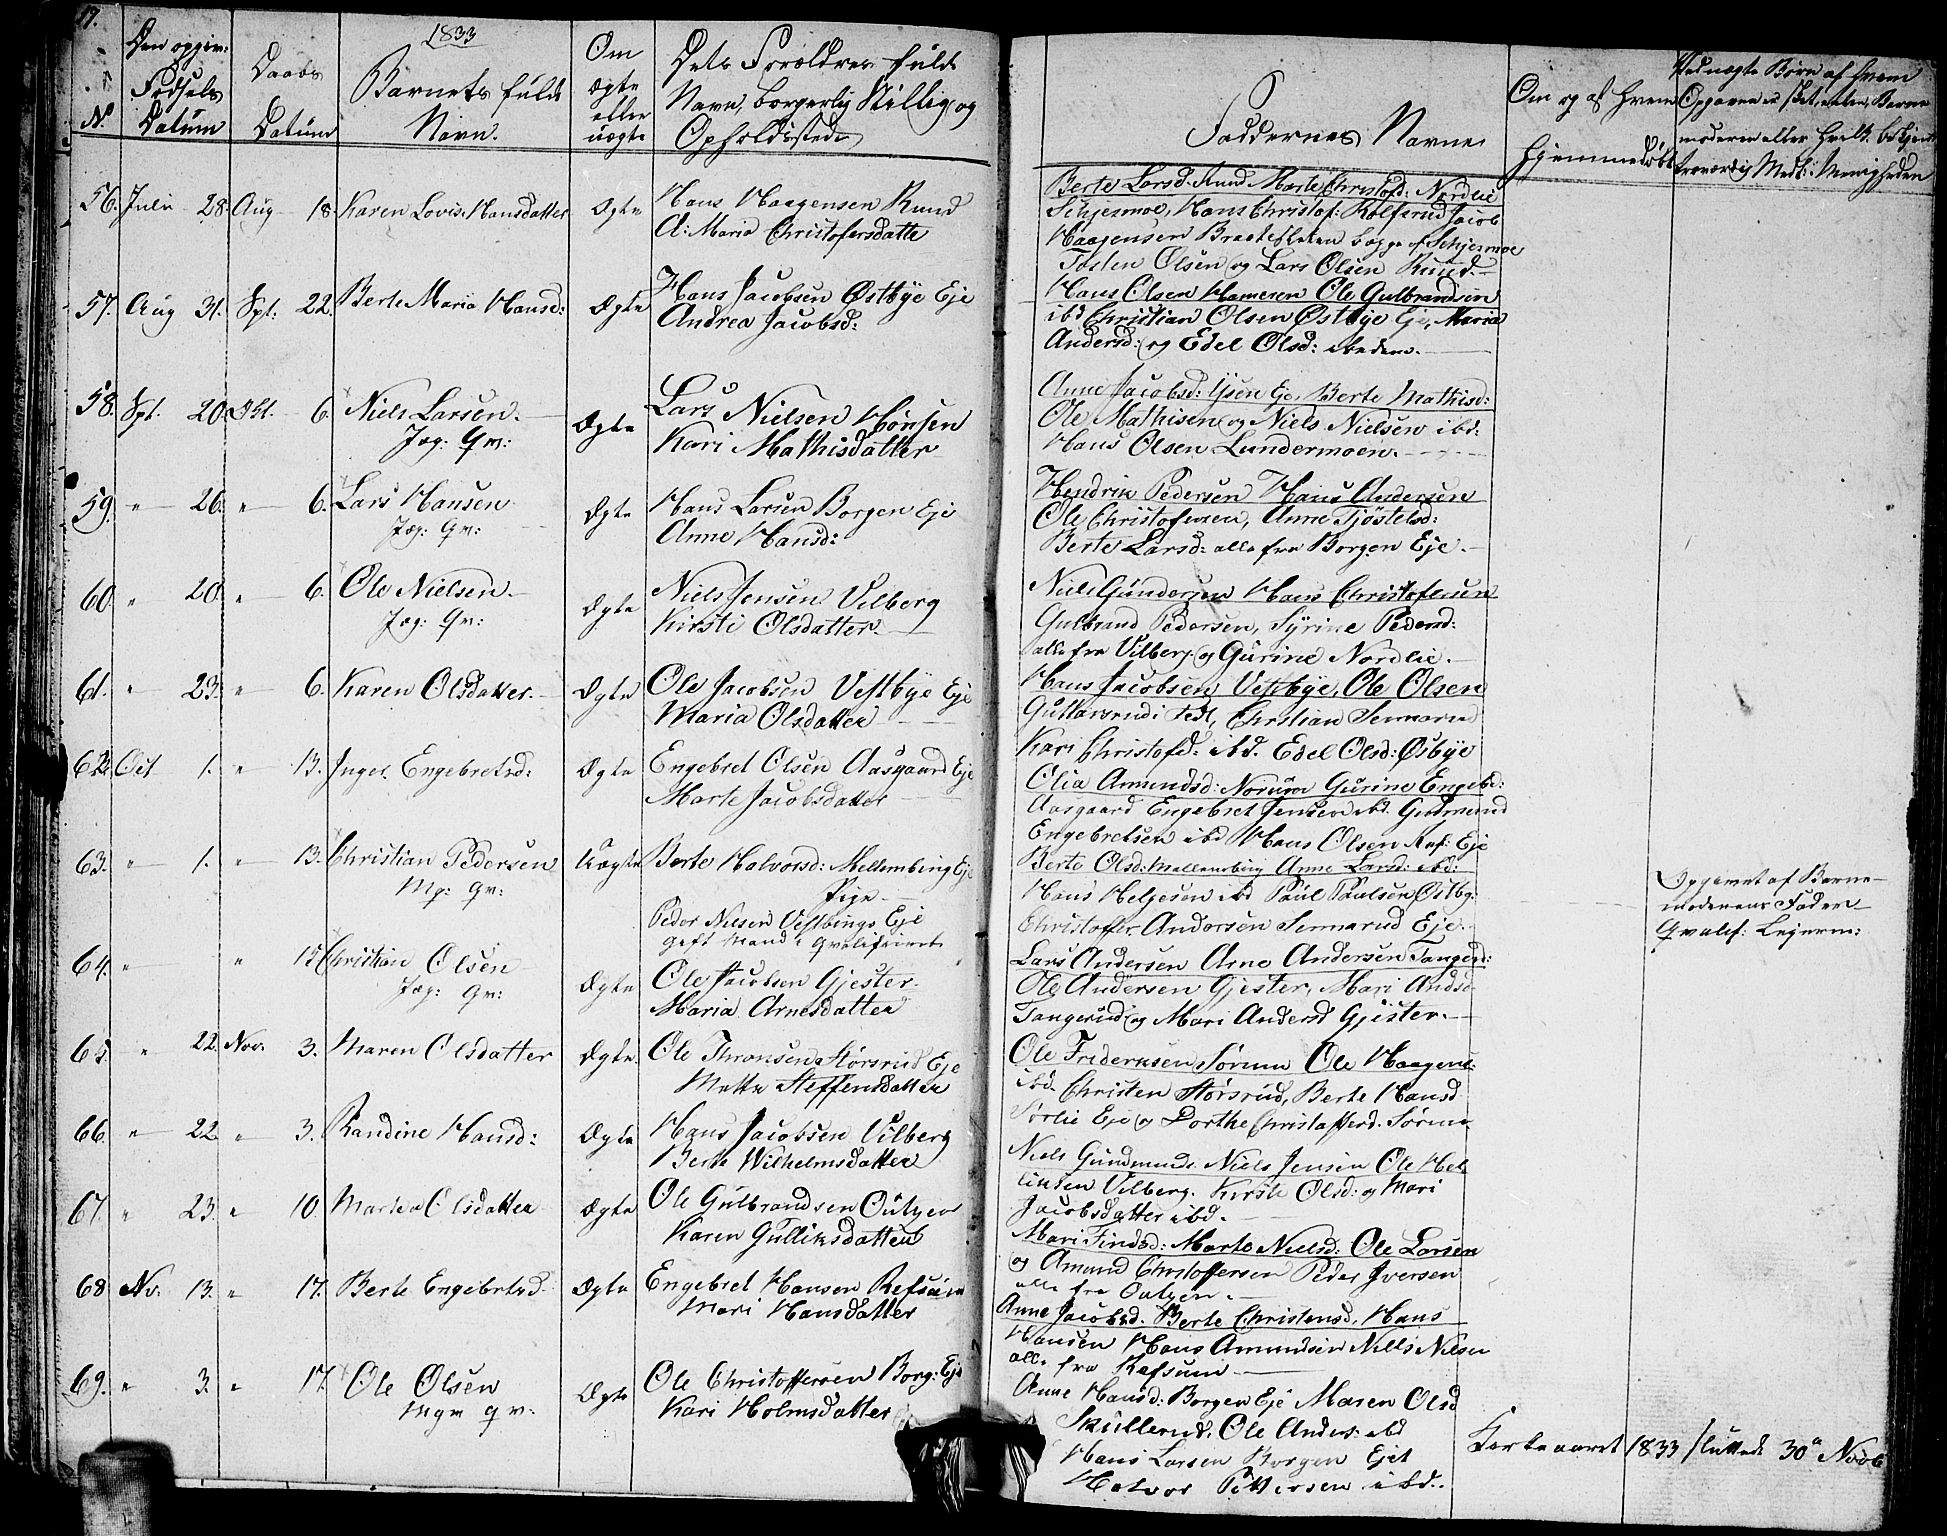 17.
1833
Den opgiv: Fødsels Datum
Daabs Datum
Barnets fulde Navn.
Om ægte eller uægte
Dets Forældres fulde Navn, borgerlig Stillig og Opholdssted
Faddernes Navne
Om og af hvem hjemmedøbt
Ved uægte Børn af hvem Opgaven er sket, enten Barne
moderen eller hvilk. bekjendt
troværdig Medl: i Menigheden
No
56. Julii 28. Aug 18. Karen Lovise Hansdatter Ægte Hans Haagensen Rund
A: Maria Christofersdatte
Berte Larsd. Rund Marte Christofd: Nordlie
Schjesmoe, Hans Christof: Rolfsrud Jacob
Haagensen Braateskeken begge af Schjesmoe
Tosten Olsen og Lars Olsen Rund.
57. Aug 31. Spt: 22. Berte Maria Hansd: Ægte Hans Jacobsen Østbye Eje
Andrea Jacobsd:
Hans Olsen Hameren Ole Gulbrandsen
ibd Christian Olsen Østbye Eje, Maria
Andersd: og Edel Olsd: ibedem.
58. Spt. 20. Okt. 6. Niels Larsen.
Jæg: Gv:
Ægte Lars Nielsen Hønsen
Kari Mathisdatter
Anne Jacobsd: Ejsen Eje, Berte Mathisd:
Ole Mathisen og Niels Nielsen ibd:
Hans Olsen Lundermoen.
59. " 26. " 6. Lars Hansen
Jæg: Gv:
Ægte Hans Larsen Borgen Eje
Anne Hansd:
Hendrik Pedersen Hans Andersen
Ole Christofersen, Anne Tjøstelsd:
Berte Larsd: alle fra Borgen Eje.
60. " 20. " 6. Ole Nielsen.
Jæg: Gv:
Ægte Niels Jensen Vilberg
Kirsti Olsdatter
Niels Gundersen Hans Christofersen
Gulbrand Pedersen, Syrine Pedersd:
alle fra Vilberg og Gurine Nordlie.
61. " 23. " 6. Karen Olsdatter. Ægte Ole Jacobsen Vestbye Eje
Maria Olsdatter
Hans Jacobsen Vestbye, Ole Olsen
Guttersrud i Fedt, Christian Sennerud
Kari Christofd: ibd. Edel Olsd: Østbye
62. Oct 1. " 13. Inger Engebretsd: Ægte Engebret Olsen Aasgaard Eje
Marte Jacobsdatter
Olia Amundsd: Norum Gurine Engebd:
Aasgaard Engebret Jensen ibd. Gudmund
Engebretsen ibd Hans Olsen Ref: Eje
63. " 1. " 13. Christian Pedersen
Mg: Gv:
Uægte Berte Halvorsd: Mellembing Eje
Pige
Peder Nilsen Vestbings Eje
gift Mand Qvalificeret
Berte Olsd: Mellembing Anne Larsd: ibd:
Hans Helgesen ibd Paul Paulsen Østby.
Christoffer Andersen Sennerud Eje.
Opgivet af Barne-
moderens Fader
Qvalif: Lejerm:
64. " " 13 Christian Olsen
Jæg: Gv:
Ægte Ole Jacobsen Gjester.
Maria Arnesdatter
Lars Andersen Arne Andersen Tangerd:
Ole Andersen Gjester, Mari Andsd
Tangerud og Mari Andersd Gjester.
65 " 22. Nov. 3. Maren Olsdatter Ægte Ole Thronsen Størsrud Eje
Mette Steffensdatter
Ole Frideriksen Sørum Ole Haagens:
ibd. Christen Størsrud, Berte Hansd
Sørlie Eje og Dorthe Christofferd. Sørum
66. " 22 " 3. Randine Hansd: Ægte Hans Jacobsen Vilberg
Berte Wilhelmsdatter
Niels Gundmunds. Niels Jensen Ole Hel
liksen Vilberg. Kirsti Olsd: og Mari
Jacobsdatter ibd.
67. " 23. " 10. Marte Olsdatter Ægte Ole Gulbrandsen Outgen
Karen Gulliksdatter
Mari Findsd: Marte Nielsd: Ole Larsen
og Amund Christoffersen Peder Iversen
alle fra Outgen.
68 Nv. 13. " 17. Berte Engebretsd Ægte Engebret Hansen Refsum
Mari Hansdatter
Anne Jacobsd. Berte Christensd. Hans
Hansen Hans Amundsen Niels Nilsen
alle fra Refsum
69. " 3. " 17. Ole Olsen
Mgv gv.
Ægte Ole Christoffersen Borg: Eje
Kari Holmsdatter
Anne Hansd: Borgen Eje Maren Olsd
Skullerud. Ole Anders: ibd
Hans Larsen Borgen Ejet
Halvor Pettersen ibd.
Kirkeaaret 1833 sluttede 30te Novb